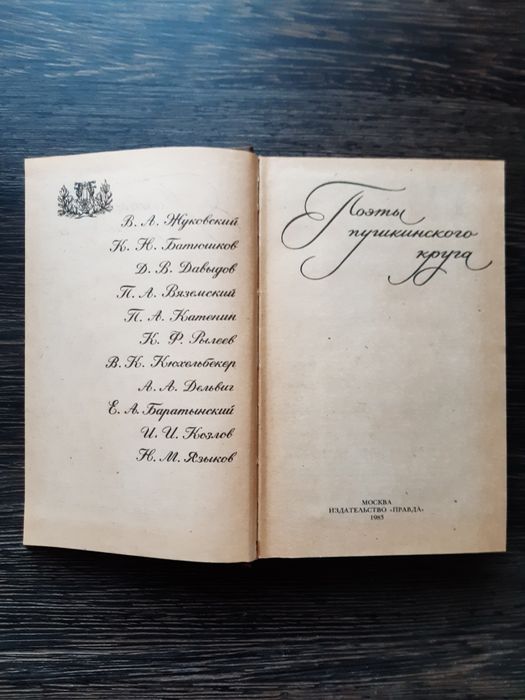 В. А. Жуковский
К. Н. Батюшков
Д. В. Давыдов
П. А. Вяземский
П. А. Катенин
К. Ф. Рылеев
В. К. Кюхельбекер
А. А. Дельвиг
Е. А. Баратынский
И. И. Козлов
Н. М. Языков
Поэты
пушкинского
круга
МОСКВА
ИЗДАТЕЛЬСТВО «ПРАВДА»
1983